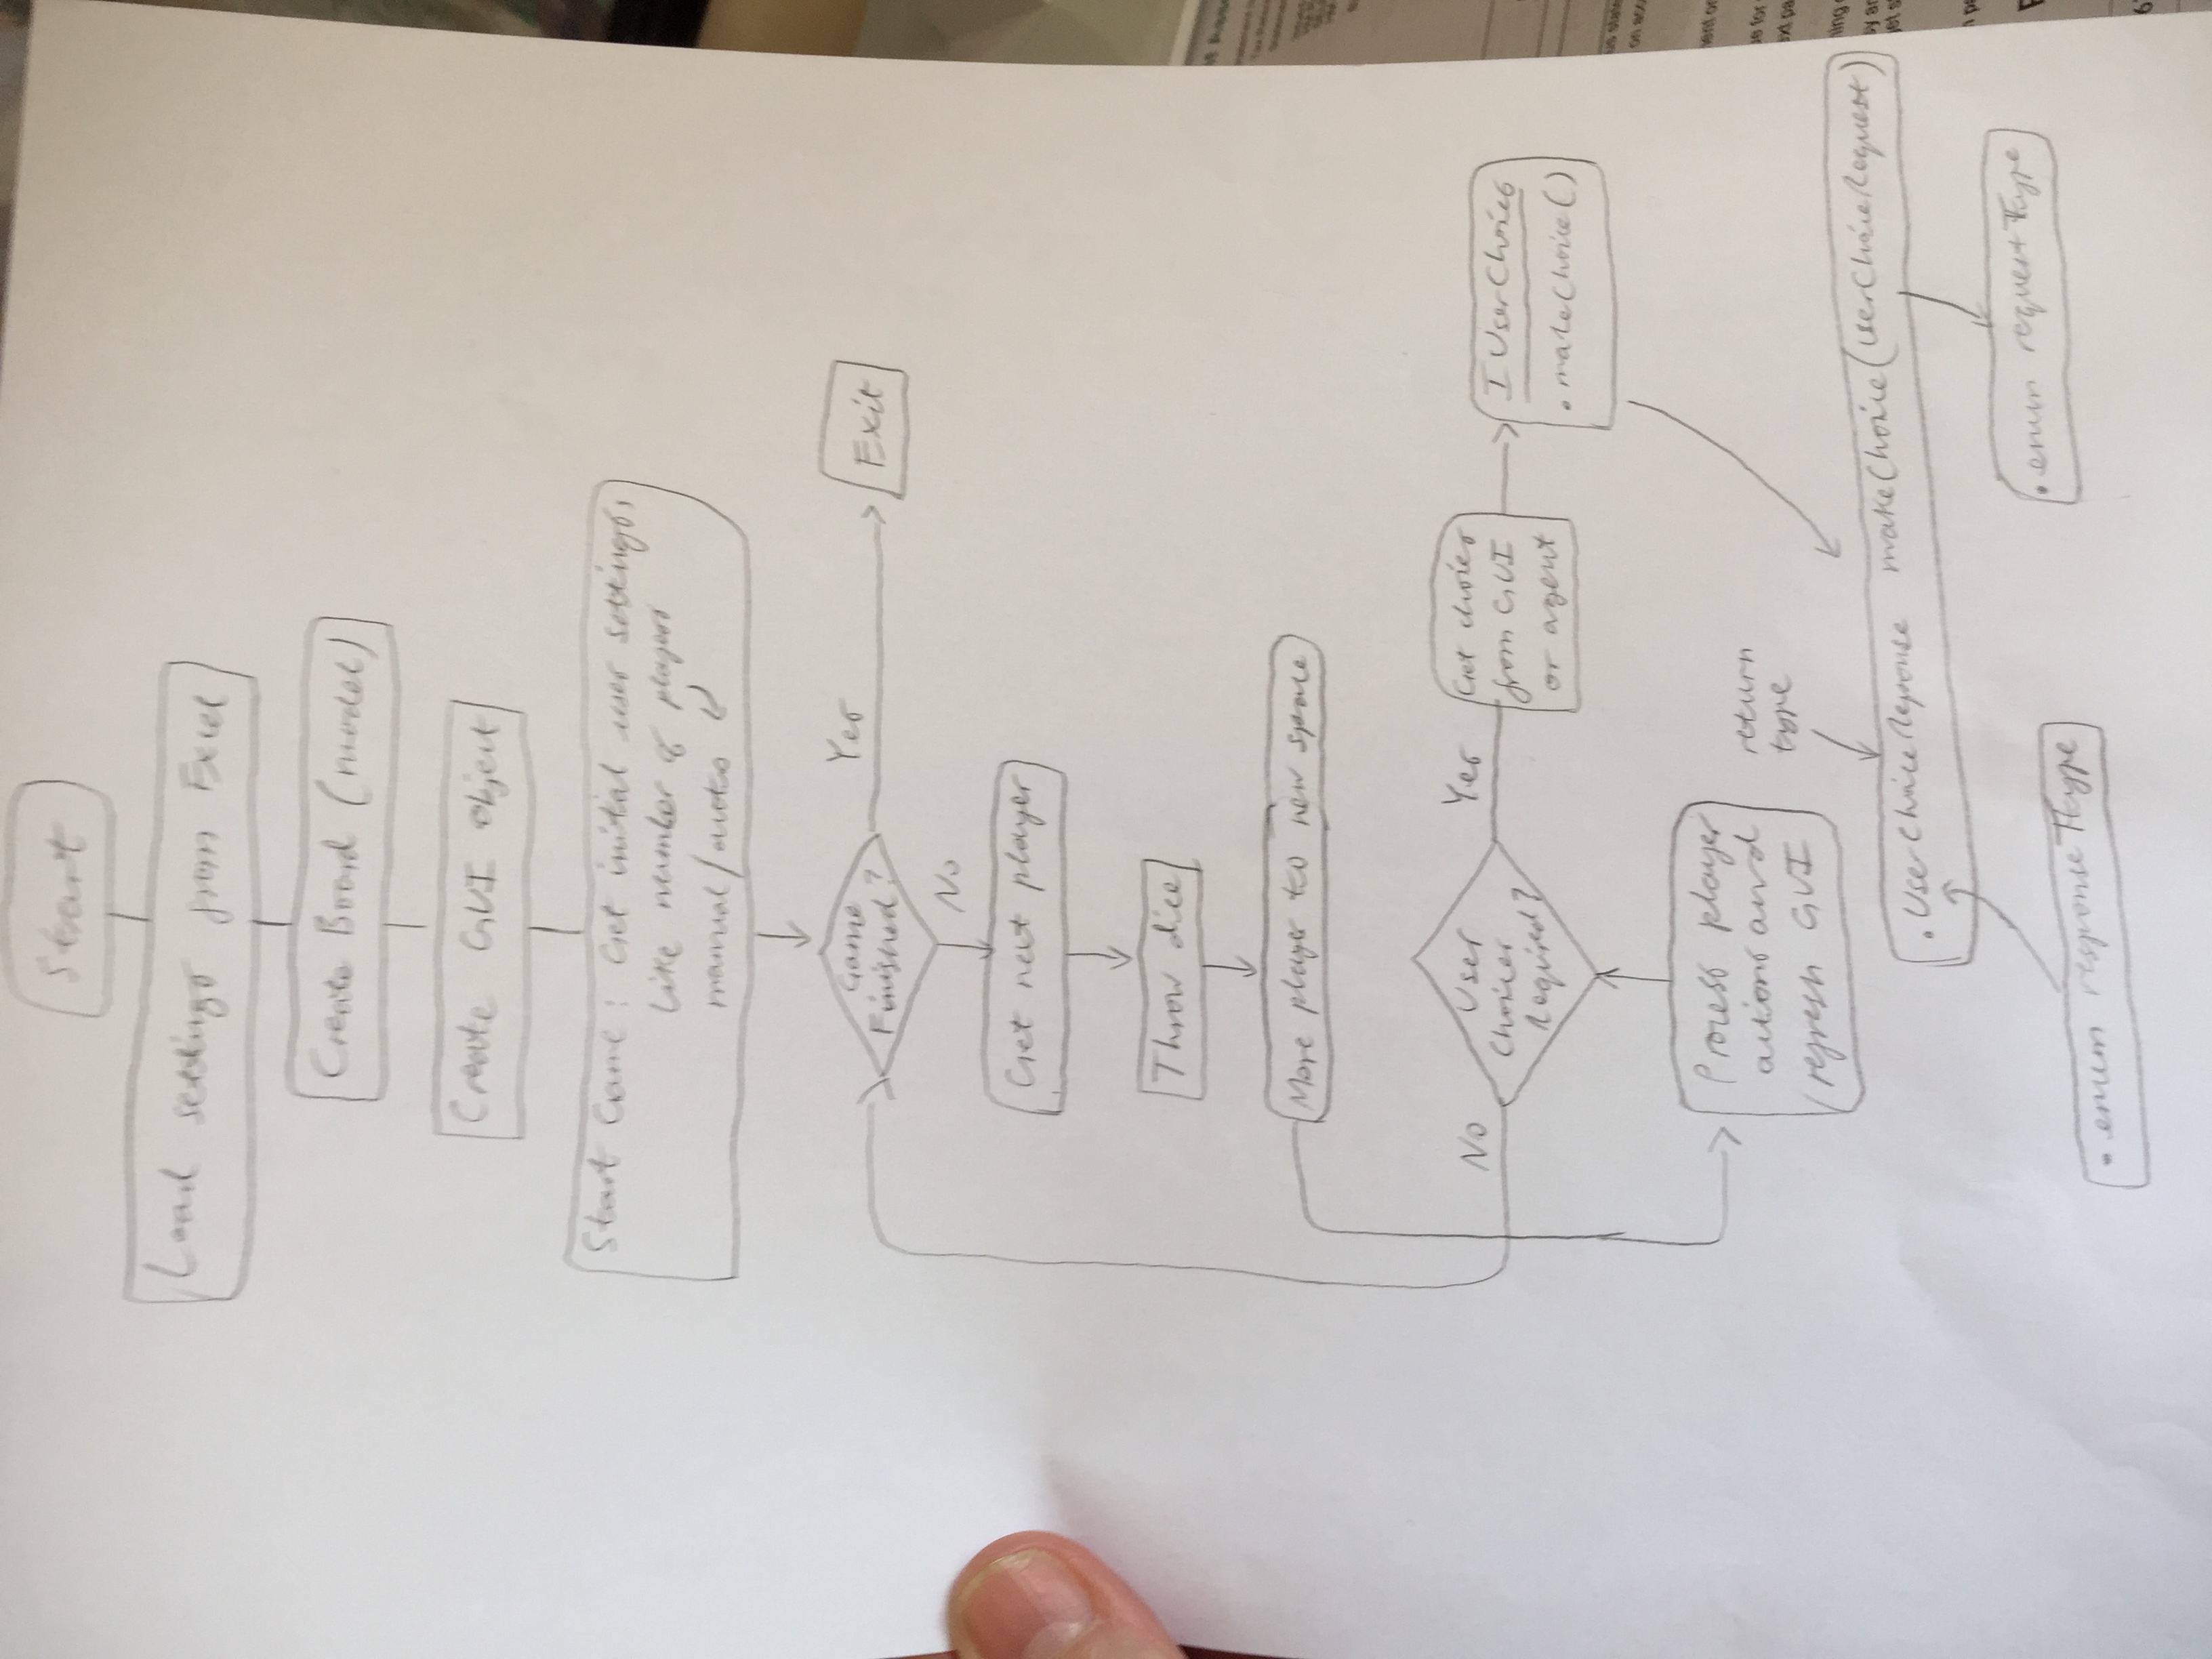 Start
Load settings from Excel
Create Board (model)
Create GUI object
Start Game: Get inital user settings,
like number of players
manual/auto
Game
Finished?
Yes
Exit
No
Get next player
Throw dice
Move player to new space
No
User
Choices
Required?
Yes
Get choices
from GUI
or agent
IUserChoice
• makeChoice()
Process player
actions and
refresh GUI
return
type
• UserChoiceReponse makeChoice(UserChoiceRequest)
• enum requestType
• enum responseType